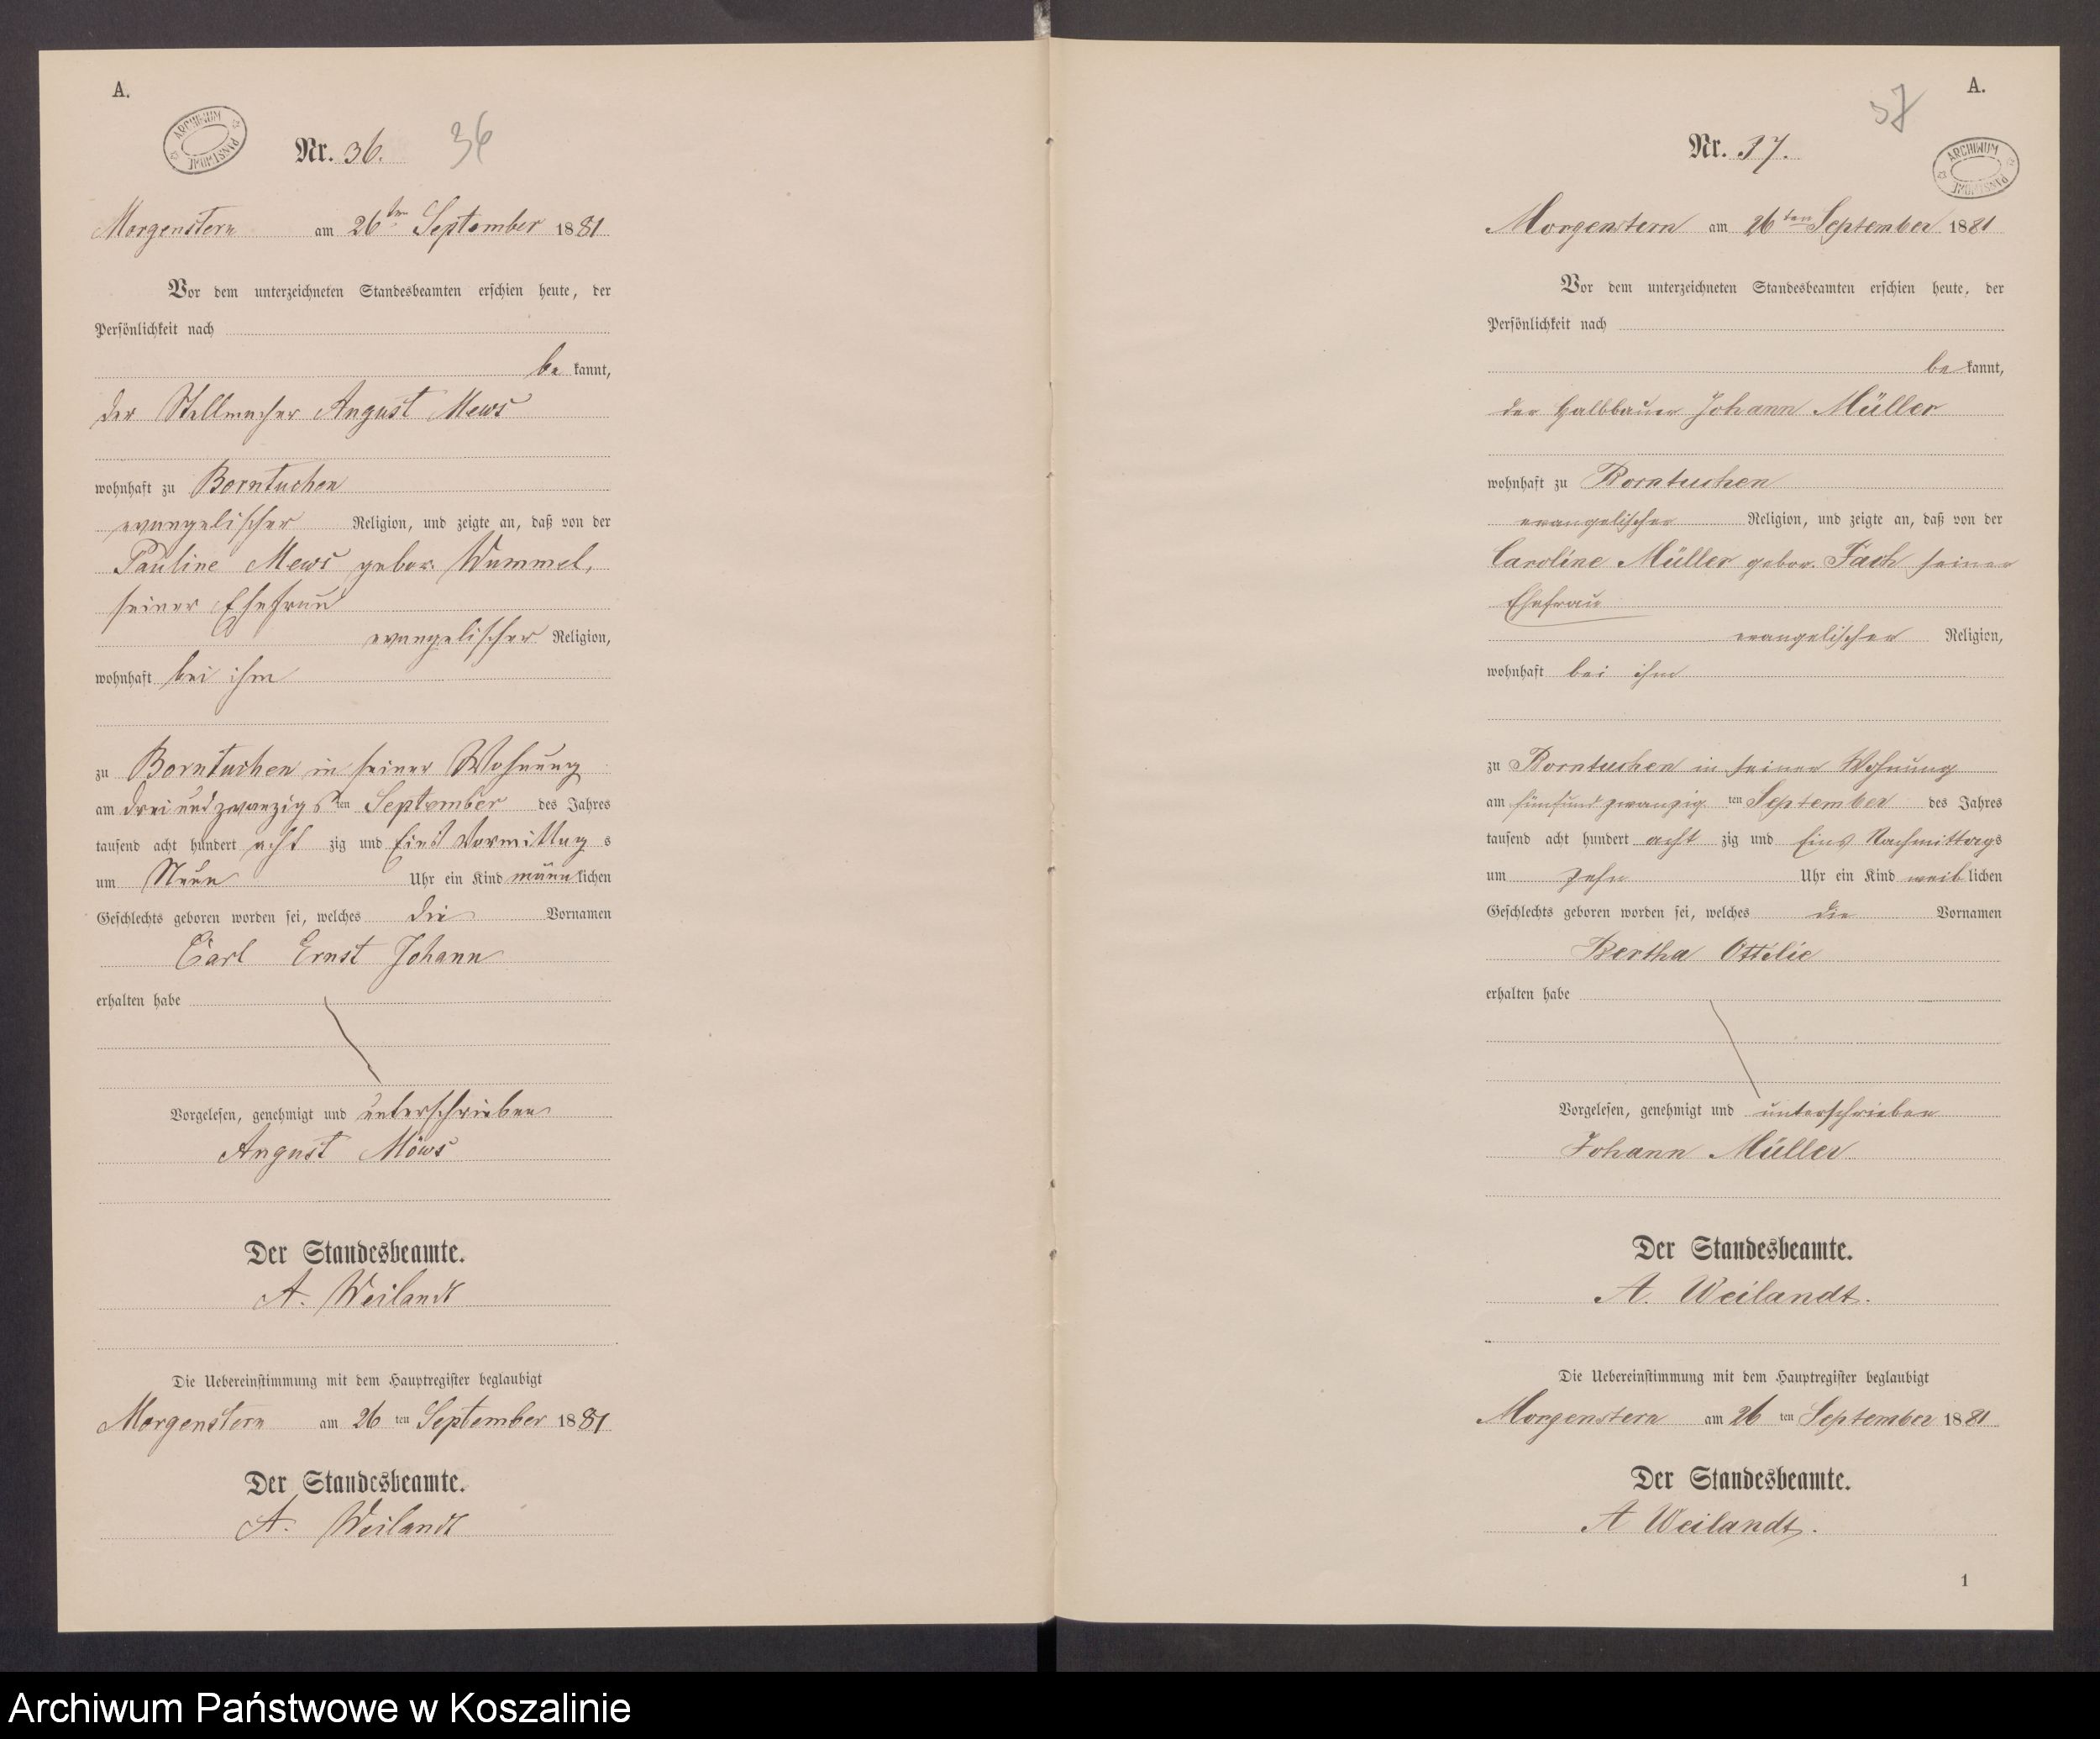 A.
ARCHIWUM PAŃSTWOWE
Nr. 36. 36
Morgenstern am 26ten September 1881
Vor dem unterzeichneten Standesbeamten erschien heute, der
Persönlichkeit nach
be kannt,
der Stellmacher August Mews
wohnhaft zu Borntuchen
evangelischer Religion, und zeigte an, daß von der
Pauline Mews gebor. Wummel,
seiner Ehefrau
evangelischer Religion,
wohnhaft bei ihm
zu Borntuchen in seiner Wohnung
am drei und zwanzigsten September des Jahres
tausend acht hundert acht zig und Eins Vormittag s
um Neun Uhr ein Kind männlichen
Geschlechts geboren worden sei, welches die Vornamen
Carl Ernst Johann
erhalten habe
Vorgelesen, genehmigt und unterschrieben
August Möws
Der Standesbeamte.
A. Weilandt
Die Uebereinstimmung mit dem Hauptregister beglaubigt
Morgenstern am 26 ten September 1881
Der Standesbeamte.
A. Weilandt
A.
37
Nr. 37.
ARCHIWUM PAŃSTWOWE
Morgenstern am 26ten September 1881
Vor dem unterzeichneten Standesbeamten erschien heute, der
Persönlichkeit nach
be kannt,
der Halbbauer Johann Müller
wohnhaft zu Borntuchen
evangelischer Religion, und zeigte an, daß von der
Caroline Müller gebor. Fach seiner
Ehefrau
evangelischer Religion,
wohnhaft bei ihm
zu Borntuchen in seiner Wohnung
am fünfundzwanzig ten September des Jahres
tausend acht hundert acht zig und Eins Nachmittags
um Zehn Uhr ein Kind weiblichen
Geschlechts geboren worden sei, welches die Vornamen
Bertha Ottilie
erhalten habe
Vorgelesen, genehmigt und unterschrieben
Johann Müller
Der Standesbeamte.
A. Weilandt.
Die Uebereinstimmung mit dem Hauptregister beglaubigt
Morgenstern am 26 ten September 1881
Der Standesbeamte.
A Weilandt.
1
Archiwum Państwowe w Koszalinie